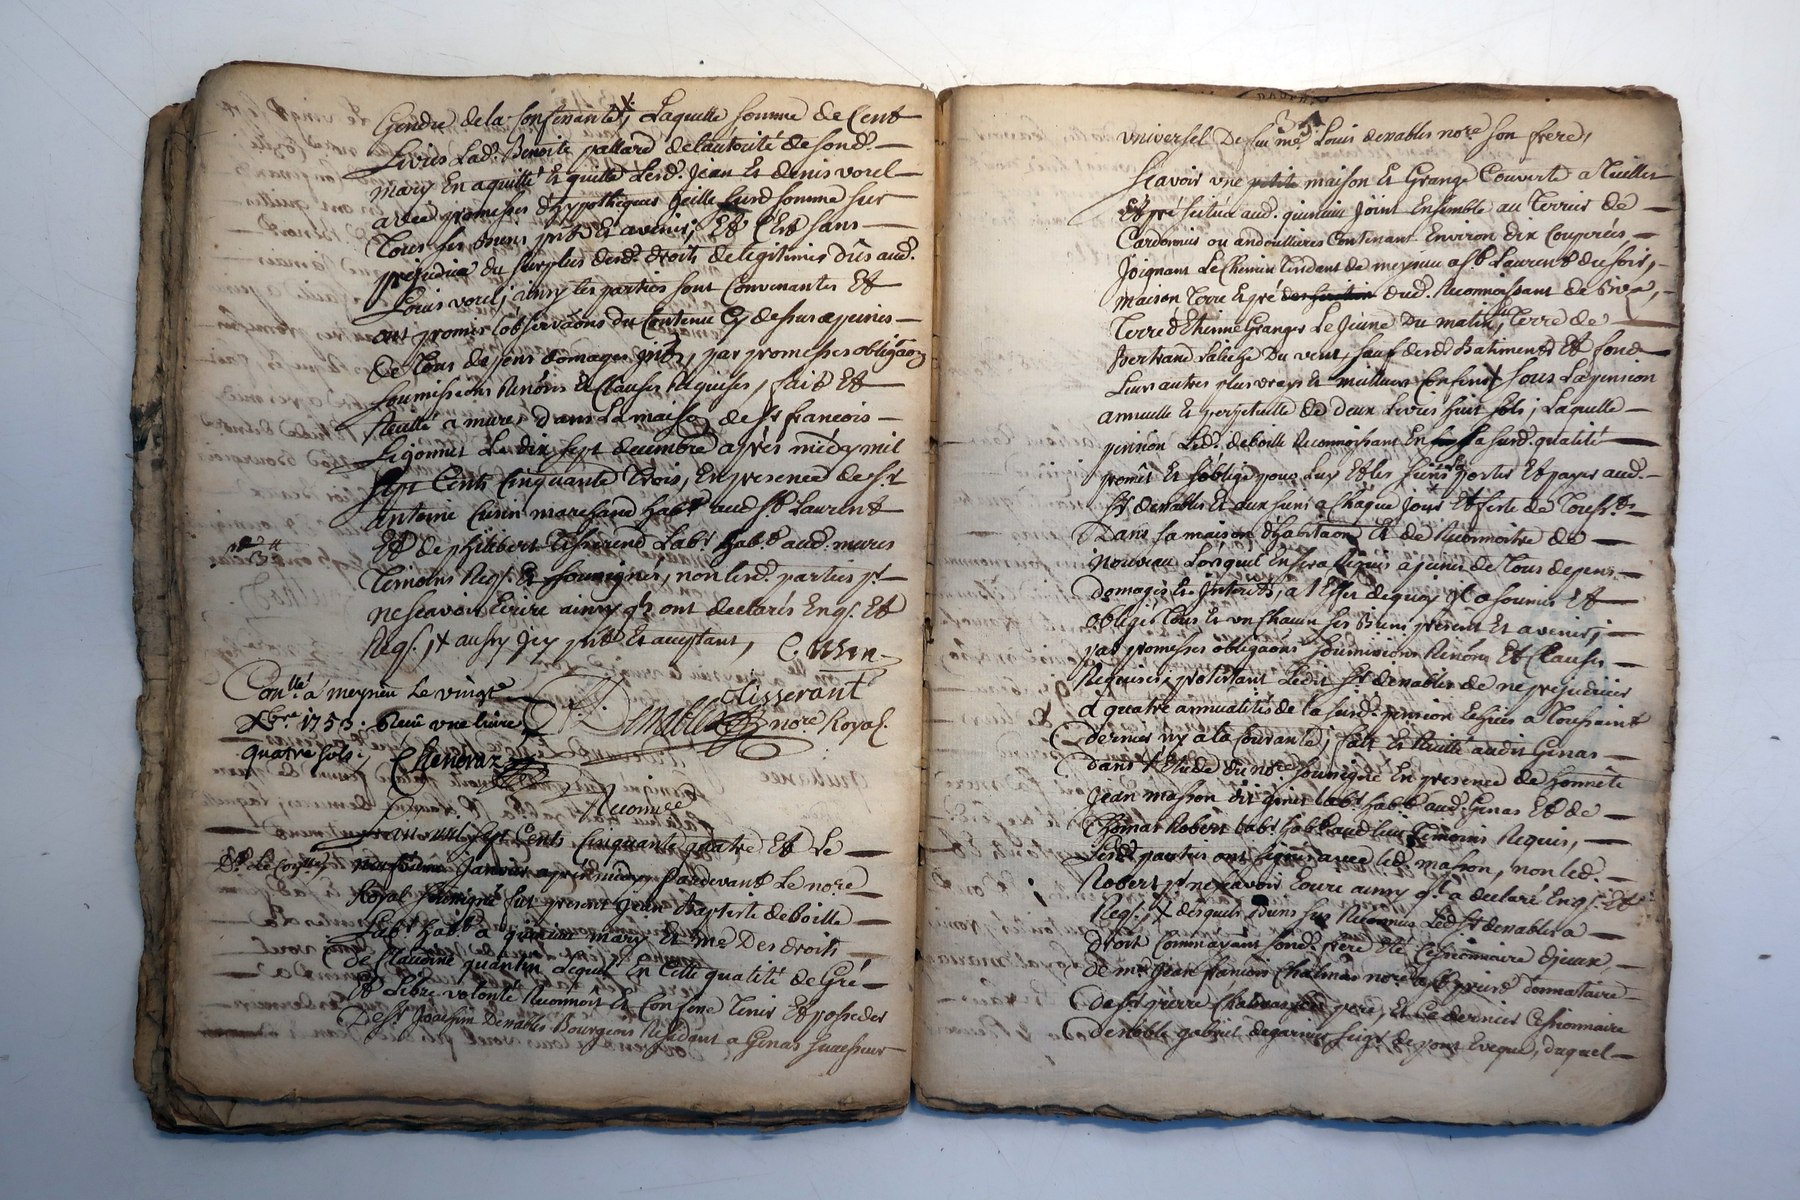 Gendre de la Confessante, Laquelle somme de Cent
Livres Lad. Benoite pallard de l'autorité de sond.
mary En aquitté Et quitte Lesd. Jean Et denis vorel
avec promesses d'hypothequer Laditte somme sur
Tous ses Biens Et avenir, Et C'est sans
prejudice du surplus desd. droits de legitimes dûs aud.
Louis vorel, ainsy les parties sont Convenantes Et
ont promis observaons du Contenu Cy dessus apeines
De Tous depens domages, par promesses obligaon
soumissions Renons Et Clauses requises, fait Et
Recitté a mures dans La maison de Sr francois
Ligonnet Le dix sept decembre après médy mil
sept Cents Cinquante Trois, En presence de Sr
antoine Cusin marchand habt aud St Laurent
Et de philibert Tisserend Labr habt aud. mures
Temoins Reqs. Et soussignés, non lesd. parties pr
ne scavoir Ecrire ainsy qu'ont declarés Enqs. Et
Reqs. aussy Et acceptant, Cusin
Conllé a meyrieu Le vingt
Xbre 1753. Reçu une livre
quatre sols,
Tisserant
Denables nore Royal.
Reconnce
L'an mil sept Cents Cinquante quatre Et Le
neufvieme Janvier après midy Pardevant Le nore
Royal soussigné fut present Jean Baptiste deboille
Labr habt a quinieu mary Et me Des droits
de Claudine quantin Lequel En Cette qualité de Gré
Et Libre volonté Reconnoit Et Confesse Tenir Et posseder
De Sr Joachim Denables Bourgeois Residant a Genas successeur
universel De feu me Louis denables nore son frere,
Scavoir vne petite maison Et Grange Couvert a Tuilles
Et pré scitué aud. quinieu Joint Ensemble au Terrier de
Cardomus ou andoullieres Contenant Environ dix Couperées
Joignant Le Chemin Tendant de meyrieu a St Laurent du soir,
maison Terre Et pré dud. Reconnoissant de Bize,
Terre d'Etienne Granger Le Jeune Du matin, Terre de
Bertrand Laliege Du vent, sauf desd. Batiments Et fond
Leurs autres plus vrays Et meilleurs Confins sous La pension
annuelle Et perpetuelle de Deux Livres huit sols, Laquelle
pension Led. deboille Reconnoissant En sa susd. qualité
promet Et s'oblige pour Luy Et les siens porter Et payer aud.
Sr denables Et aux siens a Chaque Jour Et feste de Touss.ts
Dans sa maison d'habitaon Et de Reconnoitre de
Nouveau Lorsquil En sera Requis a peines de Tous depens
Domages Et Interets, a l'Effet dequoy Il a soumis Et
obligé Tous Et un Chacun ses Biens present Et avenir,
par promesses obligaons soumissions Renons Et Clauses
Requises, protestant Ledit Sr denables de ne prejudicier
a quatre annualités de la susd. pension Echües a Toussaint
dernier ny a la Courante, fait Et Recitté audit Genas
Dans l'Etude du nore soussigné En presence de honnete
Jean masson dit Labr habt aud. Genas Et de
Thomas Robert Labr habt aud lieu Temoins Requis,
Lesd parties ont signés avec led. masson, non led.
Robert pr ne scavoir Ecrire ainsy qu'l a declaré Enqs. Et
Reqs, desquels Biens sus Reconnus Led Sr denables a
Droit Comme ayant sond. frere Eté Cessionnaire d'jceux
de me Jean francois Chalmas nore a St prie donnataire
De Sr pierre Chalmas son pere, Et Ce dernier Cessionnaire
De noble gabriel degarnier seigr de pont Eveque, duquel